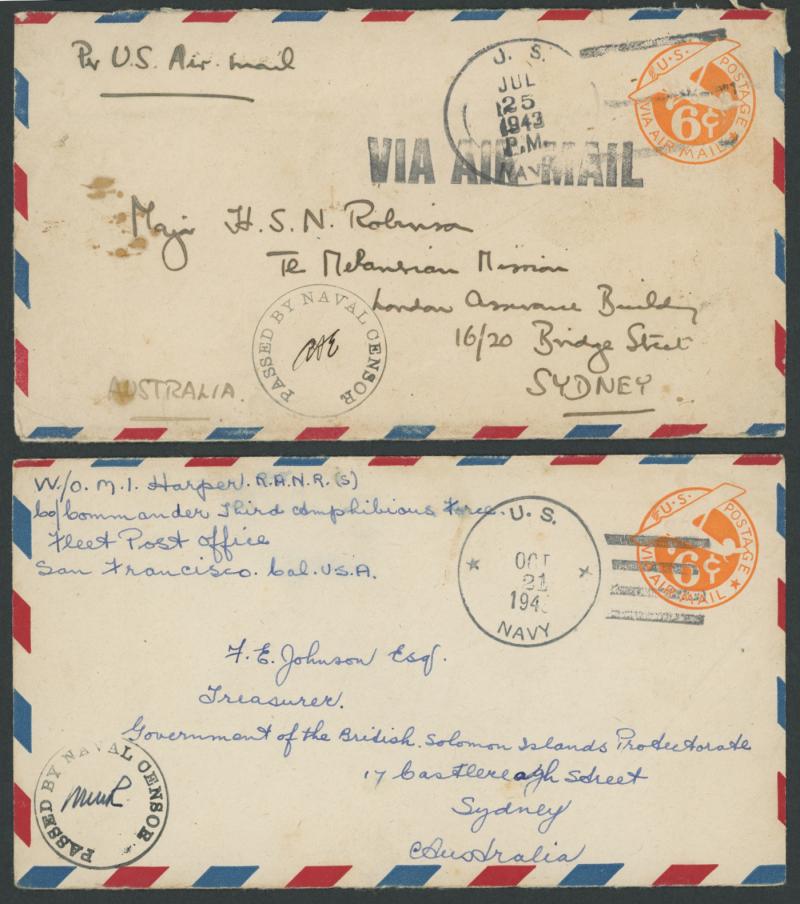 Per U.S. Air mail
U. S.
JUL
25
1943
P.M.
NAVY
U.S. POSTAGE
6¢
VIA AIR MAIL
VIA AIR MAIL
Major H.S.N. Robinson
The Melanesian Mission
London Assurance Building
16/20 Bridge Street
SYDNEY
AUSTRALIA.
PASSED BY NAVAL CENSOR
W/O. M.I. Harper. R.A.N.R.(S)
Co/Commander Third Amphibious Force.
Fleet Post Office
San Francisco. Cal. U.S.A.
U.S.
OCT
21
194
NAVY
U.S. POSTAGE
6¢
VIA AIR MAIL
F. E. Johnson Esq.
Treasurer.
Government of the British Solomon Islands Protectorate
17 Castlereagh Street
Sydney
Australia
PASSED BY NAVAL CENSOR